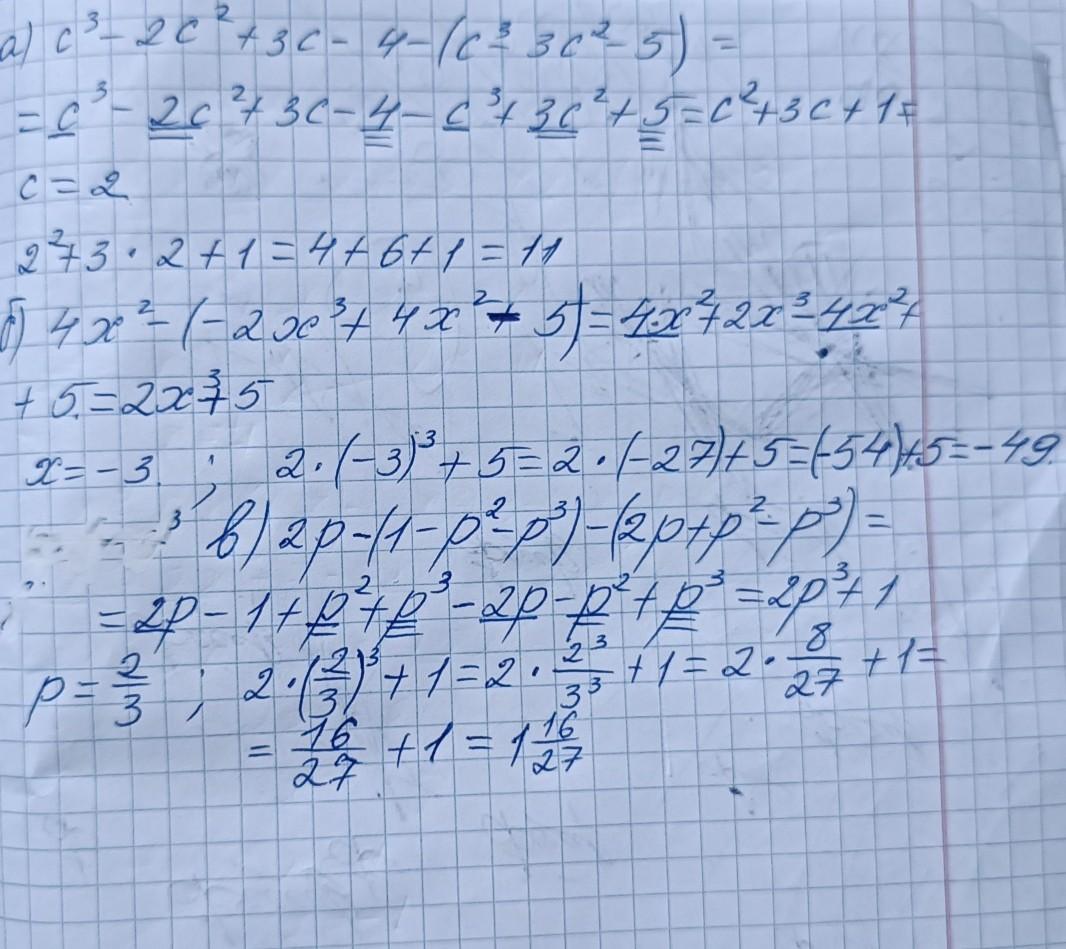 а) c³ - 2c² + 3c - 4 - (c³ - 3c² - 5) =
= c³ - 2c² + 3c - 4 - c³ + 3c² + 5 = c² + 3c + 1 =
c = 2
2² + 3 · 2 + 1 = 4 + 6 + 1 = 11
б) 4x² - (-2x³ + 4x² - 5) = 4x² + 2x³ - 4x² +
+ 5 = 2x³ + 5
x = -3 ; 2 · (-3)³ + 5 = 2 · (-27) + 5 = (-54) + 5 = -49.
в) 2p - (1 - p² - p³) - (2p + p² - p³) =
= 2p - 1 + p² + p³ - 2p - p² + p³ = 2p³ + 1
p = 2/3 ; 2 · (2/3)³ + 1 = 2 · 2³/3³ + 1 = 2 · 8/27 + 1 =
= 16/27 + 1 = 1 16/27